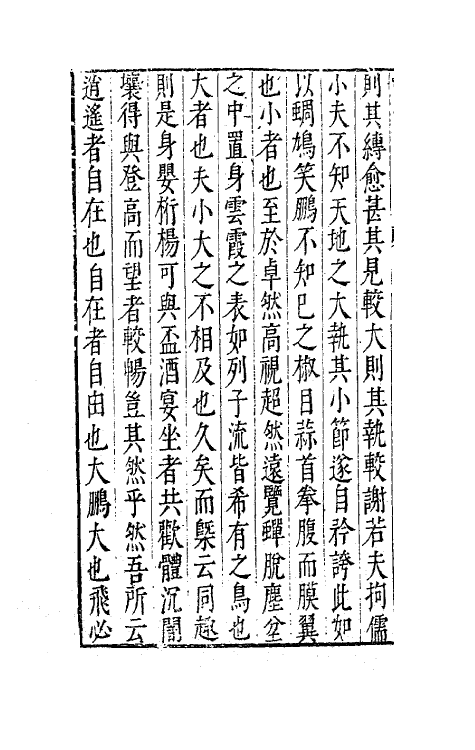 則其縛愈甚其見較大則其執較謝若夫拘儒
小夫不知天地之大執其小節遂自矜誇此如
以蜩鳩笑鵬不知已之椒目蒜首拳腹而膜翼
也小者也至於卓然高視超然遠覽蟬脫塵坌
之中置身雲霞之表如列子流皆希有之鳥也
大者也夫小大之不相及也久矣而槩云同趣
則是身嬰桁楊可與盃酒宴坐者共歡體沉闇
壤得與登高而望者較暢豈其然乎然吾所云
逍遙者自在也自在者自由也大鵬大也飛必